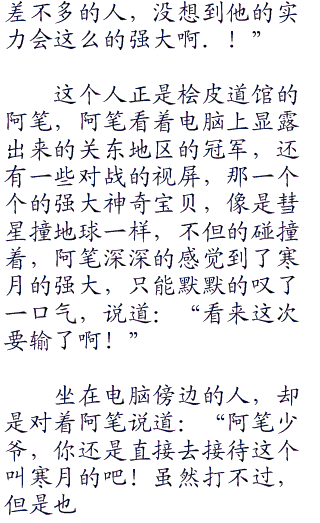 差不多的人，没想到他的实
力会这么的强大啊．！”
这个人正是桧皮道馆的
阿笔，阿笔看着电脑上显露
出来的关东地区的冠军，还
有一些对战的视屏，那一个
个的强大神奇宝贝，像是彗
星撞地球一样，不但的碰撞
着，阿笔深深的感觉到了寒
月的强大，只能默默的叹了
一口气，说道：“看来这次
要输了啊！”
坐在电脑傍边的人，却
是对着阿笔说道：“阿笔少
爷，你还是直接去接待这个
叫寒月的吧！虽然打不过，
但是也